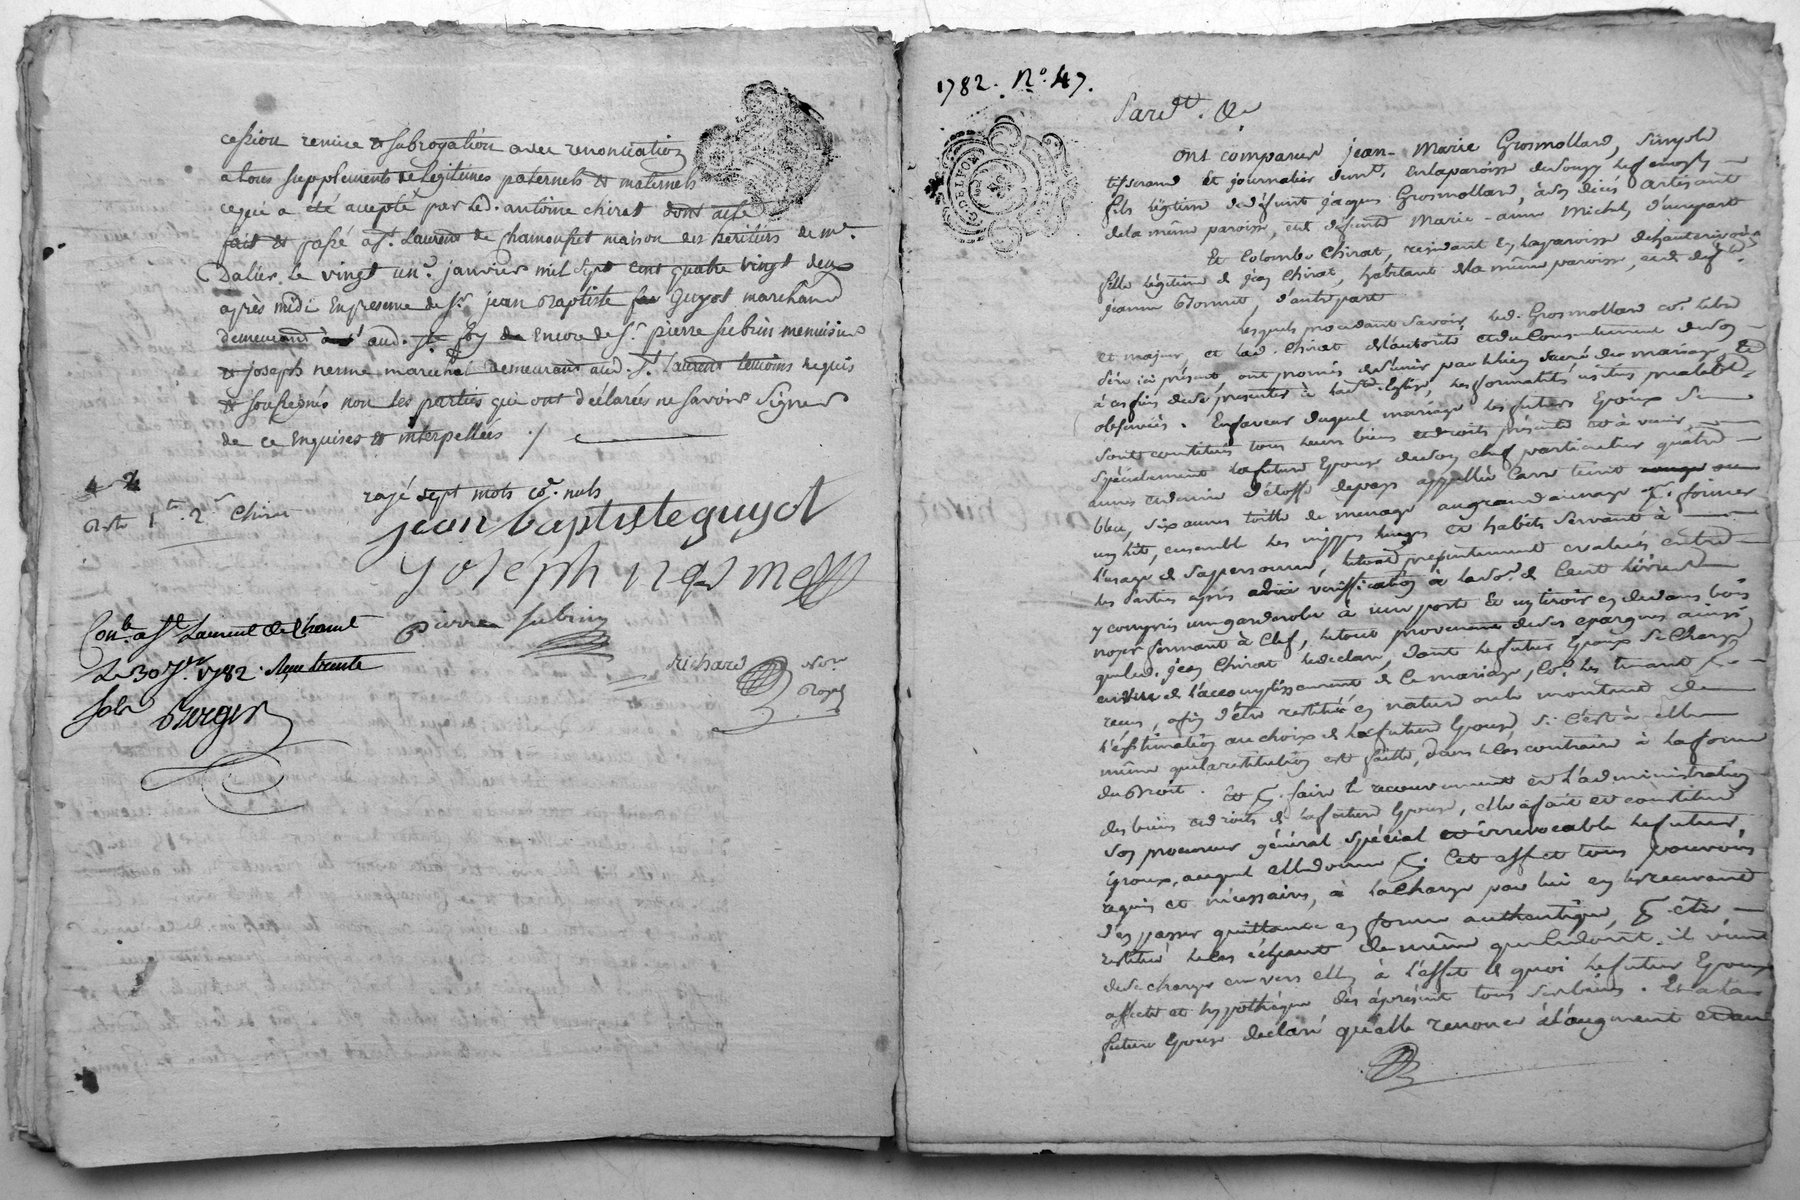 cession remise & subrogation avec renonciation
a tous supplements de legitimes paternels & maternels
ce qui a été accepté par led. antoine chirat dont acte
fait & passé a St. Laurent de Chamousset maison des heritiers de mr.
Dalier le vingt un. janvier mil sept cent quatre vingt deux
après midi En presence de Sr. jean Baptiste Guyot marchand
demeurant aud. Ste foy Encore de Sr. pierre subrin menuisier
& joseph nesme marechal demeurant aud. St. Laurent temoins requis
& soussignés non les parties qui ont déclarées ne savoir Signer
de ce Enquises & interpellées ./
rayé sept mots co. nuls
Chirat
jean baptiste guyot
joseph nesme
pierre subrin
Conlé. a St. Laurent de Chamt.
Le 30 Jer. 1782. Reçu trente
sols
Richard Nore.
Royal
1782. No. 47.
Pardt. &c
ont comparus jean-Marie Grosmollard, simple
tisserand et journalier demt. en la paroisse de
fils légitime de défunt jacques Grosmollard, artisant
de la même paroisse, et de défunte Marie-anne Michel, d'une part
Et Colombe Chirat, residant en la paroisse de
fille légitime de jean Chirat, habitant de la même paroisse, et de deffte.
jeanne d'autre part
Lesquels procedant Savoir, led. Grosmollard co. libre
et majeur, et lad. Chirat de l'autorité et du Consentement de son
père ici présent, ont promis de s'unir par le lien sacré du mariage, Et
à ces fins de se présenter à la Ste. Eglise, les formalités usitées préalablt.
observées. En faveur duquel mariage les futurs Epoux Se
sont constitués tous leurs biens et droits présents et à venir,
spécialement la future Epouse de son chef particulier quatre
aunes et demie d'étoffe de pays appellée Carre teint
bleu, six aunes toille de menage au grand aunage pr. former
un lit, ensemble les nippes linges et habits servant à
l'usage de sa personne, le tout présentement évalués entre
les Parties après vérification à la So. de Cent livres
y compris un garderobe à une porte Et un tiroir en dedans bois
noyer fermant à Clef, le tout provenant de ses epargnes ainsi
que led. jean Chirat le déclare, dont le futur Epoux Se Charge
en vue de l'accomplissement de ce mariage, co. les tenant
reçus, afin d'être restitués en nature ou le montant de
l'estimation au choix de la future Epouse, Si C'est à elle
même que la restitution est faitte, dans le cas contraire à la forme
du Droit. Et pr. faire le recouvrement et l'administration
des biens et droits de la future Epouse, elle a fait et constitué
son procureur général spécial et irrevocable le futur
époux, auquel elle donne pr. Cet effet tous pouvoirs
requis et nécessaires, à la charge par lui en les recevant
d'en passer quittance en forme authentique, pr. être
restitué le cas échéant de même que le dont. il vient
de se charger envers elle, à l'effet de quoi le futur Epoux
affecte et hypothèque dès àprésent tous ses biens. Et a lad.
future Epouse declaré qu'elle renonce à l'augment